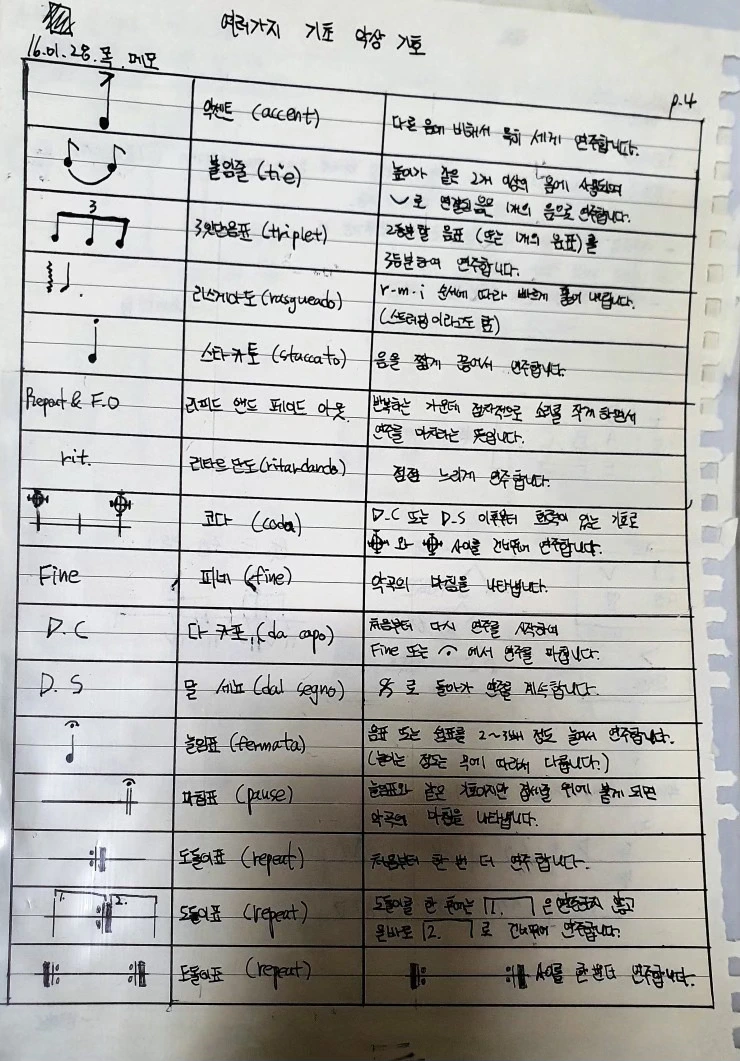 여러가지 기초 악상 기호
16.01.28.목. 메모
p.4
악센트 (accent)
다른 음에 비해서 특히 세게 연주합니다.
붙임줄 (tie)
높이가 같은 2개 이상의 음에 사용되며
로 연결된 음은 1개의 음으로 연주합니다.
3
3잇단음표 (triplet)
2등분할 음표 (또는 1개의 음표)를
3등분하여 연주합니다.
라스게아도 (rasgueado)
r-m-i 순서에 따라 빠르게 훑어 내립니다.
(스트러밍이라고도 함)
스타카토 (staccato)
음을 짧게 끊어서 연주합니다.
Repeat & F.O
리피드 앤드 페이드 아웃.
반복하는 가운데 점차적으로 소리를 작게 하면서
연주를 마치라는 뜻입니다.
rit.
리타르단도 (ritardando)
점점 느리게 연주합니다.
코다 (coda)
D.C 또는 D.S 이후부터 효력이 있는 기호로
와 사이를 건너뛰어 연주합니다.
Fine
피네 (fine)
악곡의 마침을 나타냅니다.
D.C
다 카포 (da capo)
처음부터 다시 연주를 시작하여
Fine 또는 에서 연주를 마칩니다.
D.S
달 세뇨 (dal segno)
로 돌아가 연주를 계속합니다.
늘임표 (fermata)
음표 또는 쉼표를 2~3배 정도 늘여서 연주합니다.
(늘이는 정도는 곡에 따라서 다릅니다.)
마침표 (pause)
늘임표와 같은 기호이지만 겹세로줄 위에 붙게 되면
악곡의 마침을 나타냅니다.
도돌이표 (repeat)
처음부터 한 번 더 연주합니다.
1. 2.
도돌이표 (repeat)
도돌이를 한 후에는 1. 은 연주하지 않고
올바로 2. 로 건너뛰어 연주합니다.
도돌이표 (repeat)
사이를 한번더 연주합니다.